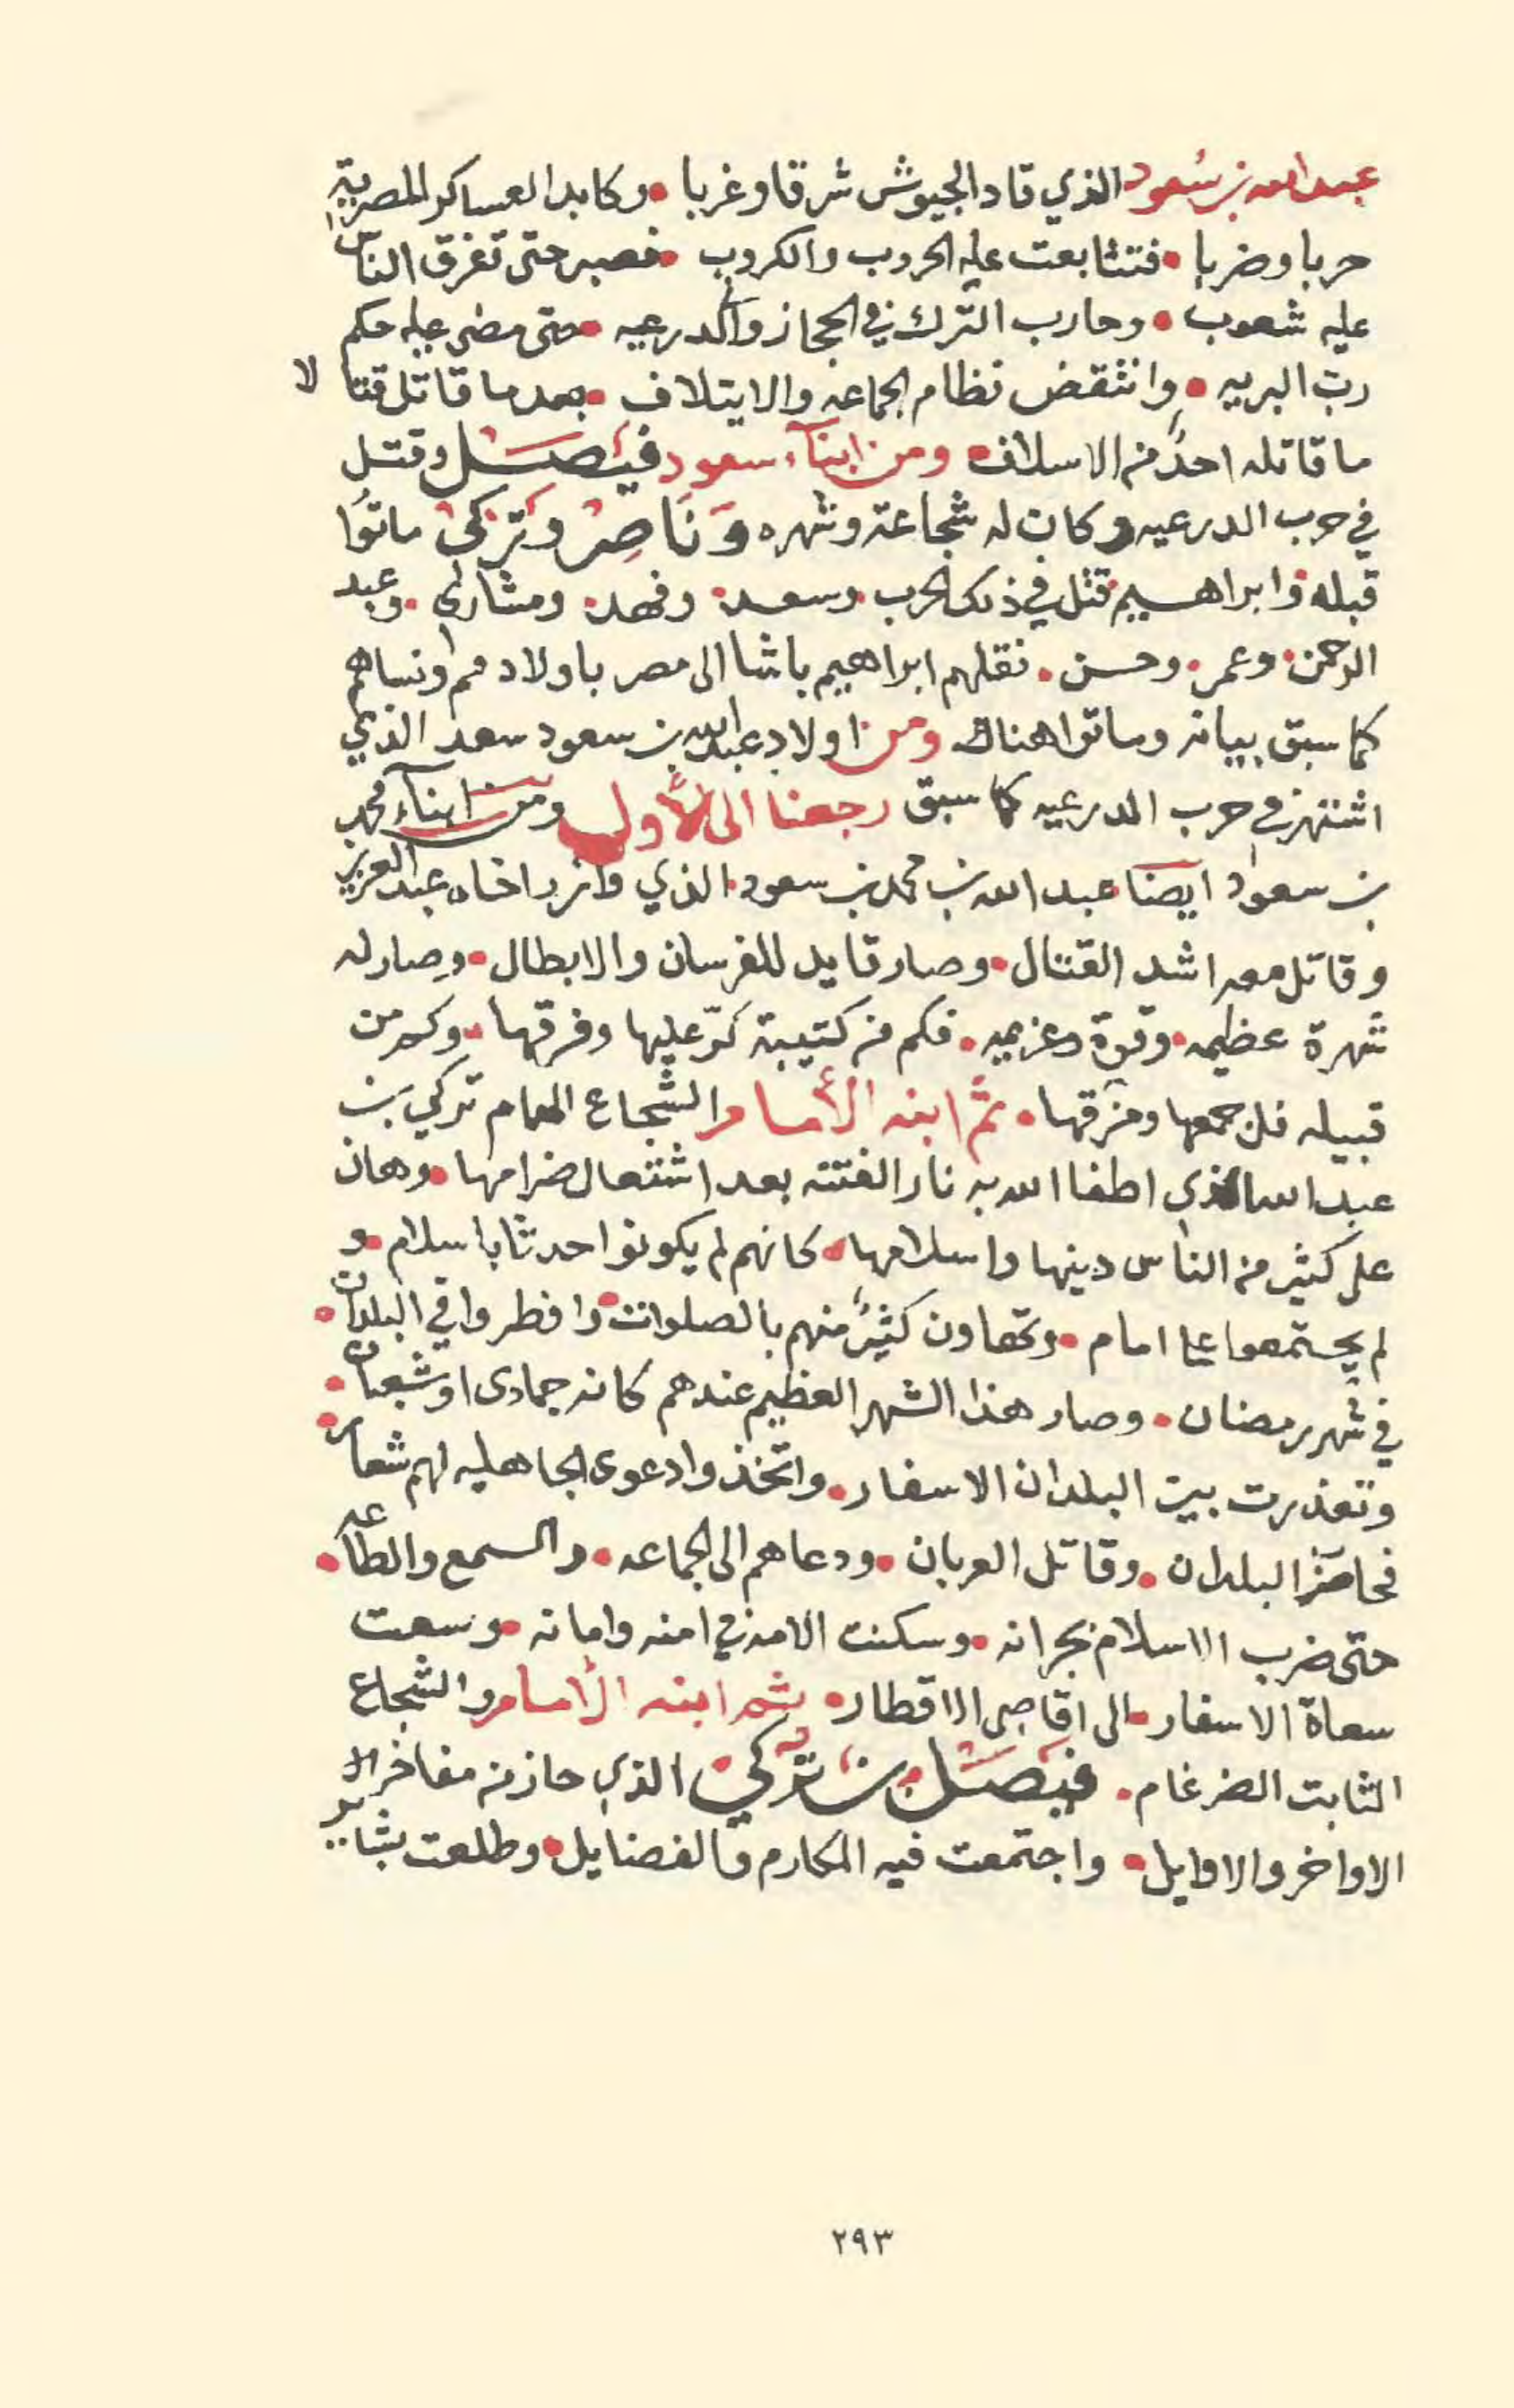 عبدالله بن سُعود الذي قاد الجيوش شرقا وغربا • وكابد العساكر المصرية
حربا وضربا • فتتابعت عليه الحروب والكروب • فصبر حتى تفرق الناس
عليه شعوب • وحارب الترك في الحجاز والدرعيه • حتى مضى عليه حكم
ربّ البريه • وانتقض نظام الجماعه والايتلاف • بعد ما قاتل قتالا
ما قاتله احدٌ من الاسلاف • ومن ابنآء سعود فيصَل وقتل
في حرب الدرعيه وكان له شجاعة وشهره وَنَاصِر وتركى ماتوُا
قبله وابراهيم قتل في ذلك الحرب • وسعد • وفهد • ومشارى • وعبد
الرحمن • وعمر • وحسن • نقلهم ابراهيم باشا الى مصر باولادهم ونساهم
كما سبق بيانه وماتوا هناك ومن اولاد عبدالله بن سعود سعد الذي
اشتهر في حرب الدرعيه كما سبق رجعنا الى الأول ومن ابنآء محمد
بن سعود ايضا عبد الله بن محمد بن سعود • الذي وازر اخاه عبدالعزيز
وقاتل معه اشد القتال • وصار قايد للفرسان والابطال • وصار له
شهرة عظيمه • وقوة وعزيمه • فكم من كتيبة كرّ عليها وفرقها • وكم من
قبيله فل جمعها ومزقها • ثمّ ابنه الأمام الشجاع الهمام تركي بن
عبد الله الذي اطفا الله به نار الفتنه بعد اشتعال ضرامها • وهان
على كثير من الناس دينها واسلامها • كانهم لم يكونوا حدثا باسلام • و
لم يجتمعوا على امام • وتهاون كثيرٌ منهم بالصلوات • وافطروا في البلدان •
في شهر رمضان • وصار هذا الشهر العظيم عندهم كانه جمادى او شعبان •
وتعذرت بين البلدان الاسفار • واتخذوا دعوى الجاهليه لهم شعار •
فحاصر البلدان • وقاتل العربان • ودعاهم الى الجماعه • والسمع والطاعه •
حتى ضرب الاسلام بجرانه • وسكنت الامه في امنه وامانه • وسعت
سعاة الاسفار • الى اقاصى الاقطار • ثم ابنه الأمام والشجاع
الثابت الضرغام • فيصَل بن تركي الذي حاز من مفاخر الا
الاواخر والاوايل • واجتمعت فيه المكارم والفضايل • وطلعت بشاير
٢٩٣